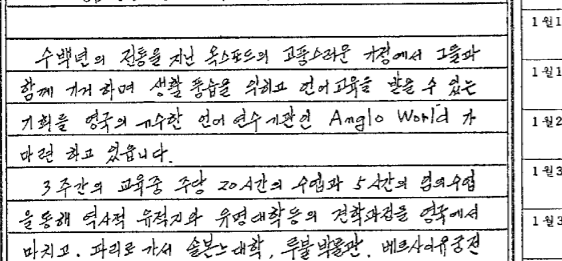 수백년의 전통을 지닌 옥스포드의 고풍스러운 가정에서 그들과
함께 기거 하며 생활 풍습을 익히고 언어교육을 받을 수 있는
기회를 영국의 우수한 언어 연수 기관인 Anglo World 가
마련 하고 있읍니다.
3주간의 교육중 주당 20시간의 수업과 5시간의 임의수업
을 통해 역사적 유적지와 유명대학등의 견학과정을 영국에서
마치고. 파리로 가서 솔본느대학, 루불박물관. 베르사이유궁전
1월1
1월1
1월2
1월3
1월3